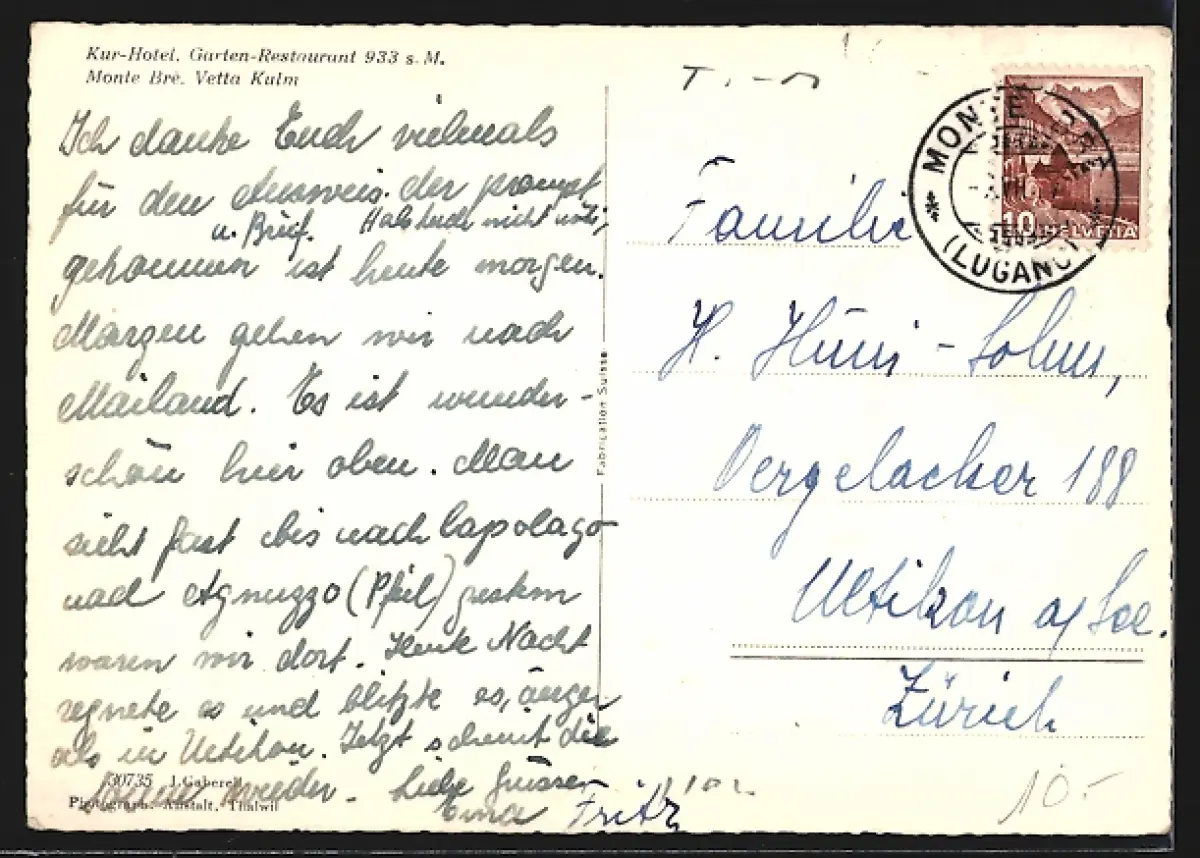 Kur-Hotel. Garten-Restaurant 933 s. M.
Monte Brè. Vetta Kulm
Ich danke Euch vielmals
für den Ausweis. der prompt
u. Brief. Halstuch nicht nöti,
gekommen ist heute morgen.
Morgen gehen wir nach
Mailand. Es ist wunder-
schön hier oben. Man
sieht fast bis nach Capolago
und Agnuzzo (Pfeil) gestern
waren wir dort. Heute Nacht
regnete es und blitzte es, ärger
als in Uetikon. Jetzt scheint die
wieder. Liebe Grüsse
Fritz
30735 J. Gaberell
Photograph. Anstalt, Thalwil
Fabrication Suisse
MONTE
(LUGANO)
10 HELVETIA
Familie
H. Hüni-
188
Uetikon a/See.
Zürich
10.-